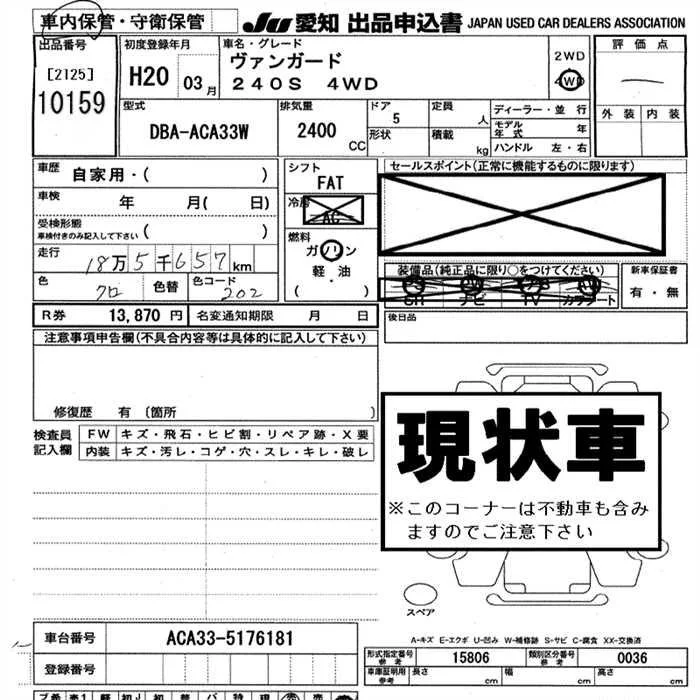 車内保管・守衛保管
JU 愛知 出品申込書 JAPAN USED CAR DEALERS ASSOCIATION
出品番号
[2125]
10159
初度登録年月
H20 03 月
車名・グレード
ヴァンガード
240S 4WD
2WD
4WD
評価点
外装 内装
型式
DBA-ACA33W
排気量
2400 CC
ドア 5
形状
定員 人
積載 kg
ディーラー・並 行
モデル年式 年
ハンドル 左・右
車歴 自家用・( )
車検 年 月( 日)
受検形態
車検付きのみ記入して下さい ( )
走行 18万5千657 km
色 クロ 色替 色コード 202
シフト
FAT
冷房
AC
燃料
ガソリン
軽・油
( )
セールスポイント(正常に機能するものに限ります)
装備品(純正品に限り○をつけてください)
ナビ TV カワシート
新車保証書
有・無
後日品
R券 13,870 円 名変通知期限 月 日
注意事項申告欄(不具合内容等は具体的に記入して下さい)
修復歴 有 〔箇所 〕
検査員記入欄
FW キズ・飛石・ヒビ割・リペア跡・X要
内装 キズ・汚レ・コゲ・穴・スレ・キレ・破レ
現状車
※このコーナーは不動車も含み
ますのでご注意下さい
スペア
A-キズ E-エクボ U-凹み W-補修跡 S-サビ C-腐食 XX-交換済
車台番号 ACA33-5176181
登録番号
形式指定番号 参考 15806 類別区分番号 参考 0036
車庫証明用 参考 長さ cm 幅 cm 高さ cm